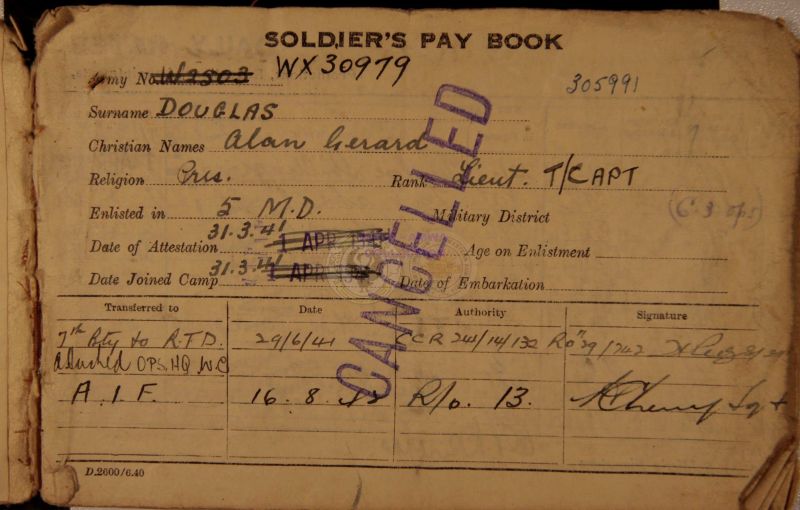 SOLDIER'S PAY BOOK
Army No. W2503 WX30979
305991
Surname DOUGLAS
Christian Names Alan Gerard
Religion Pres. Rank Lieut. T/CAPT
Enlisted in 5 M.D. Military District (G.3 Ops)
Date of Attestation 31.3.41 1 APR Age on Enlistment
Date Joined Camp 31.3.41 1 APR Date of Embarkation
CANCELLED
Transferred to Date Authority Signature
7th Bty to R.T.D. 29/6/41 CCR 241/14/132 Ron 29/742
Attached OPS. HQ W.C
A.I.F. 16.8. R/o. 13.
D.2600/6.40